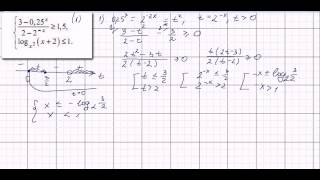 3 − 0,25ˣ / 2 − 2⁻ˣ ≥ 1,5, (1)
log_{x²}(x + 2) ≤ 1.
1) 0,25ˣ = 2⁻²ˣ = t², t = 2⁻ˣ, t > 0
3 − t² / 2 − t − 3/2 ≥ 0
2t² − 3t / 2(t − 2) ≥ 0 t(2t − 3) / 2(t − 2) ≥ 0
[ t ≤ 3/2 [ 2⁻ˣ ≤ 3/2 [ −x ≤ log₂ 3/2
t > 2 2⁻ˣ > 2 −x > 1
{ x ≥ − log₂ 3/2